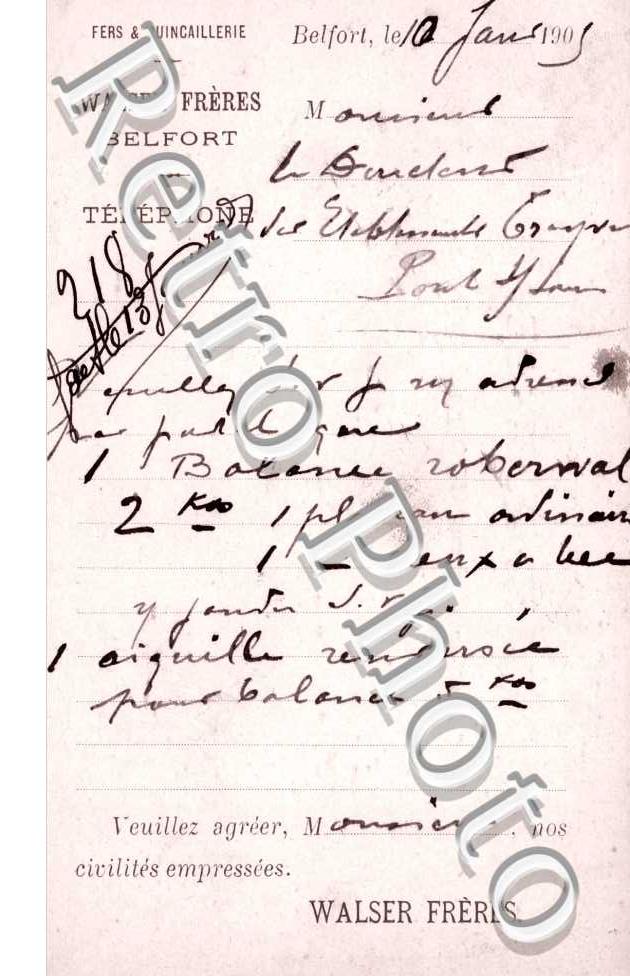 FERS & QUINCAILLERIE
WALSER FRÈRES
BELFORT
TÉLÉPHONE
218
Belfort, le 10 Janv 1905
Monsieur
le Directeur
des Etablissements
Pont
par postal gare
1 Balance roberval
2 Kos 1 plateau ordinaire
1 — creux a bec
y joindre S.V.P.
1 aiguille renversée
pour balance 5 Kos
Veuillez agréer, Monsieur, nos
civilités empressées.
WALSER FRÈRES
Retro Photo